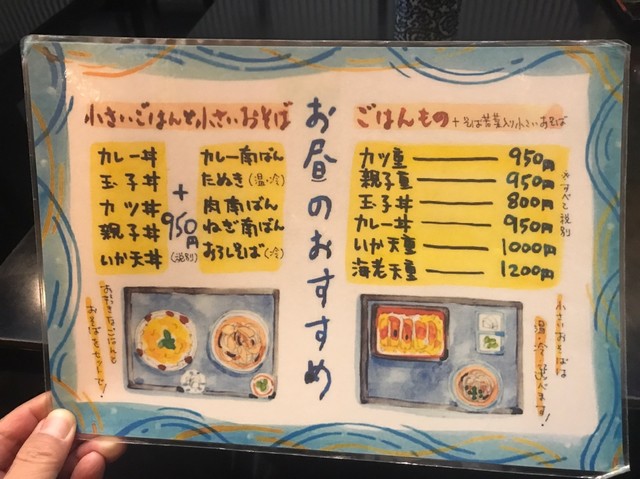 お昼のおすすめ
ごはんもの
+そば若茎入り小さいおそば
カツ重 950円
親子重 950円
玉子丼 800円
カレー丼 950円
いか天重 1000円
海老天重 1200円
※すべて税別
小さいおそばは
温・冷 選べます!
小さいごはんと小さいおそば
カレー丼
玉子丼
カツ丼
親子丼
いか天丼
+
950円
(税別)
カレー南ばん
たぬき(温・冷)
肉南ばん
ねぎ南ばん
おろしそば(冷)
お好きなごはんと
おそばをセットで!